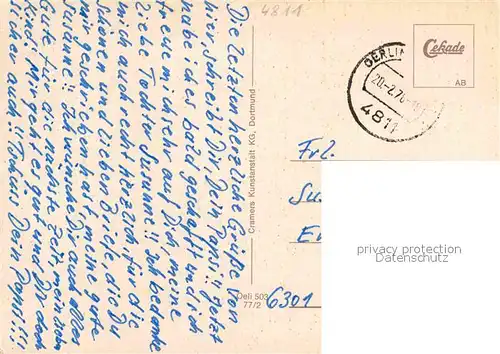 4811
Die letzten herzliche Grüße von
hier schreibt Dir, Dein Papsi!! Jetzt
habe ich es bald geschafft und ich
freu mich sehr auf Dich, meine
liebe Tochter Susanne!! Ich bedanke
mich auch erst herzlich für die
schöne und lieben Briefe, die Du
mir geschicken hast meine gute
Susanne!! Ich wünsche Dir auch alles
Gute für die nächste Zeit, mein liebes
Kind. Mir geht es gut und Dir doch
sicher auch!! Tschüs, Dein Papsi!!!
Cramers Kunstanstalt KG, Dortmund
Deli 503
77/2
Cekade
AB
OERLIN
20.-2.7
4811
Frl.
Su
6301
privacy protection
Datenschutz